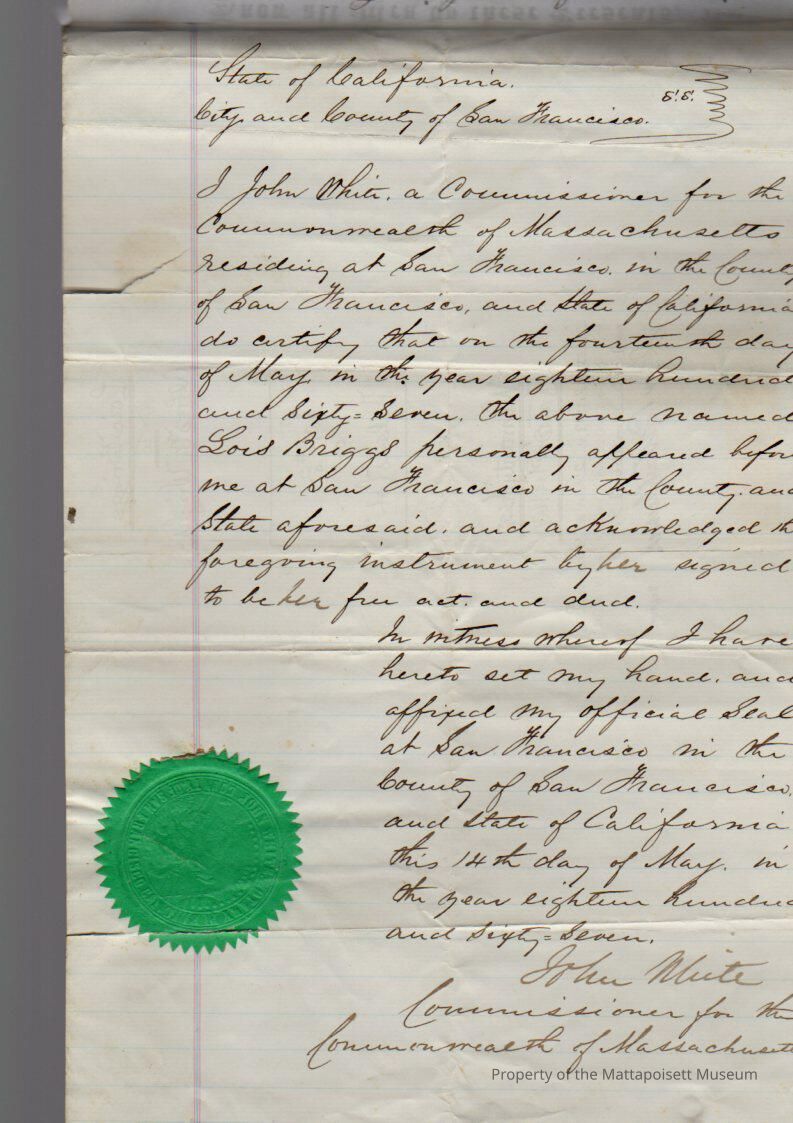 State of California.
s.s.
City and County of San Francisco.
I John White, a Commissioner for the
Commonwealth of Massachusetts
residing at San Francisco, in the County
of San Francisco, and State of California
do certify that on the fourteenth day
of May, in the year eighteen hundred
and Sixty=Seven, the above named
Lois Briggs personally appeared befor
me at San Francisco in the County and
State aforesaid, and acknowledged th
foregoing instrument by her signed
to be her free act and deed.
In witness whereof I have
hereto set my hand, and
affixed my official Seal
at San Francisco in the
County of San Francisco,
and State of California
this 14th day of May, in
the year eighteen hundred
and Sixty=Seven.
John White
Commissioner for the
Commonwealth of Massachusett
Property of the Mattapoisett Museum